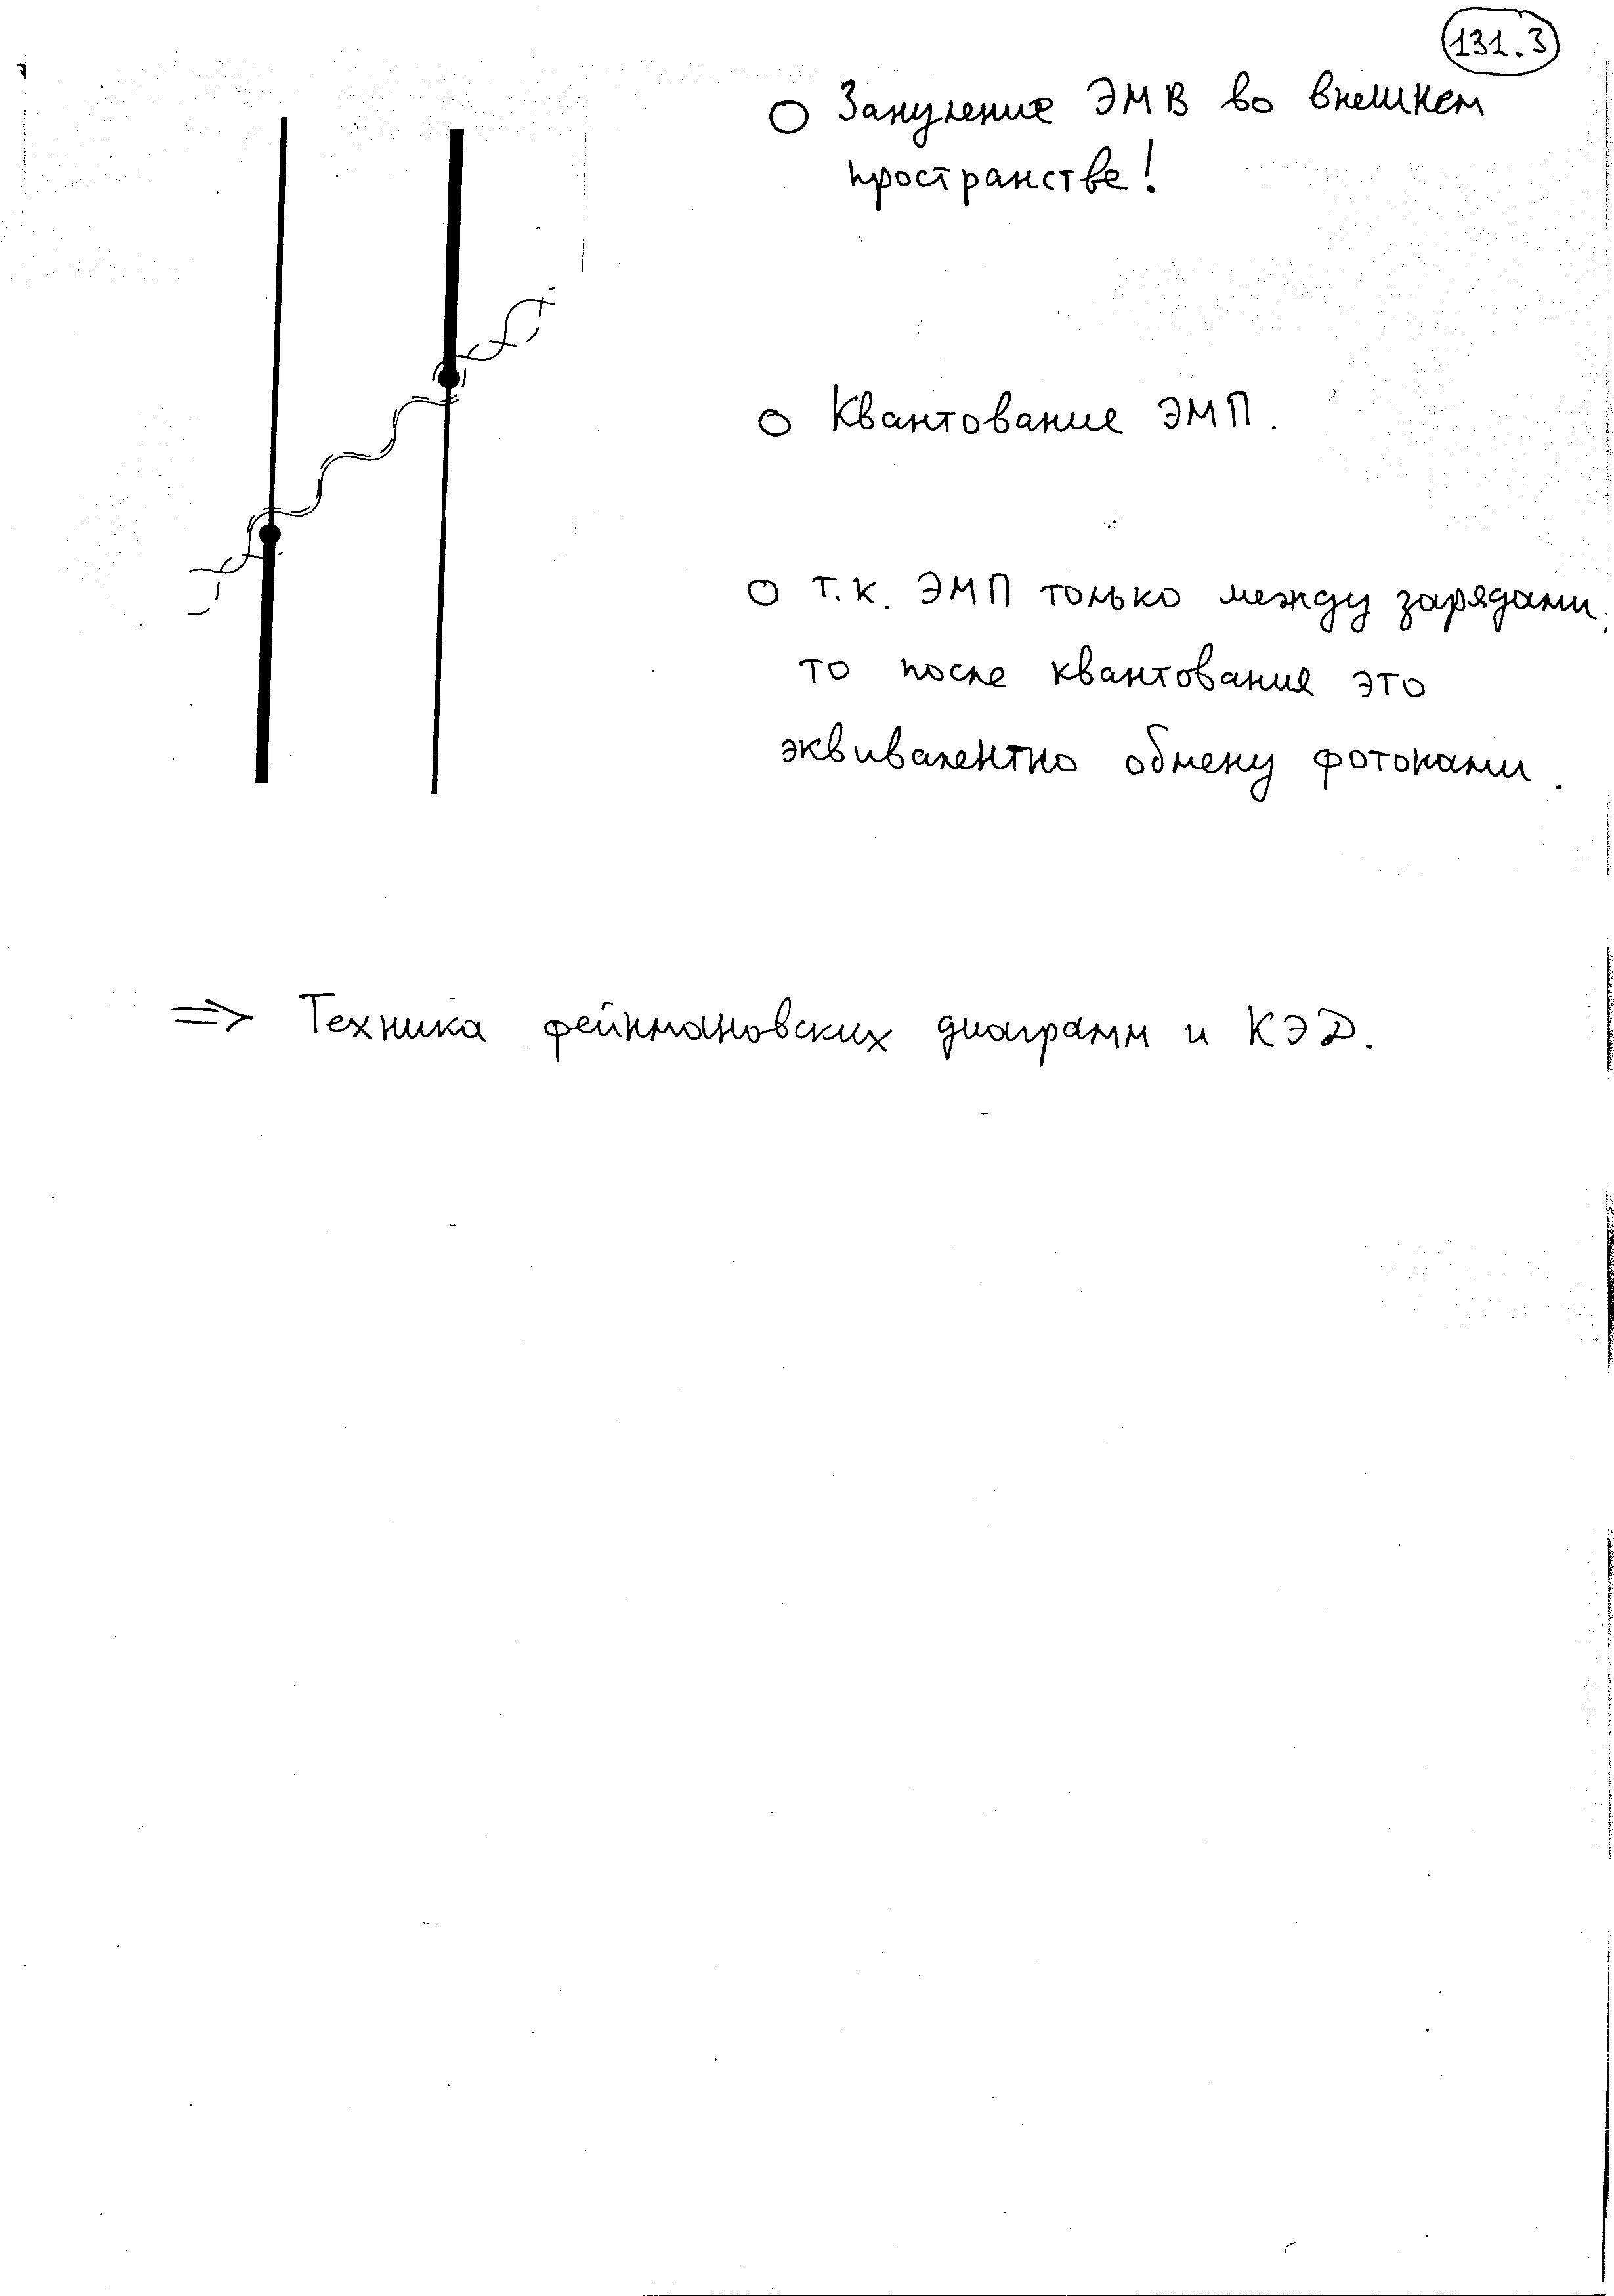 131.3
○ Зануление ЭМВ во внешнем
пространстве!
○ Квантование ЭМП.
○ т.к. ЭМП только между зарядами,
то после квантования это
эквивалентно обмену фотонами.
=> Техника фейнмановских диаграмм и КЭД.